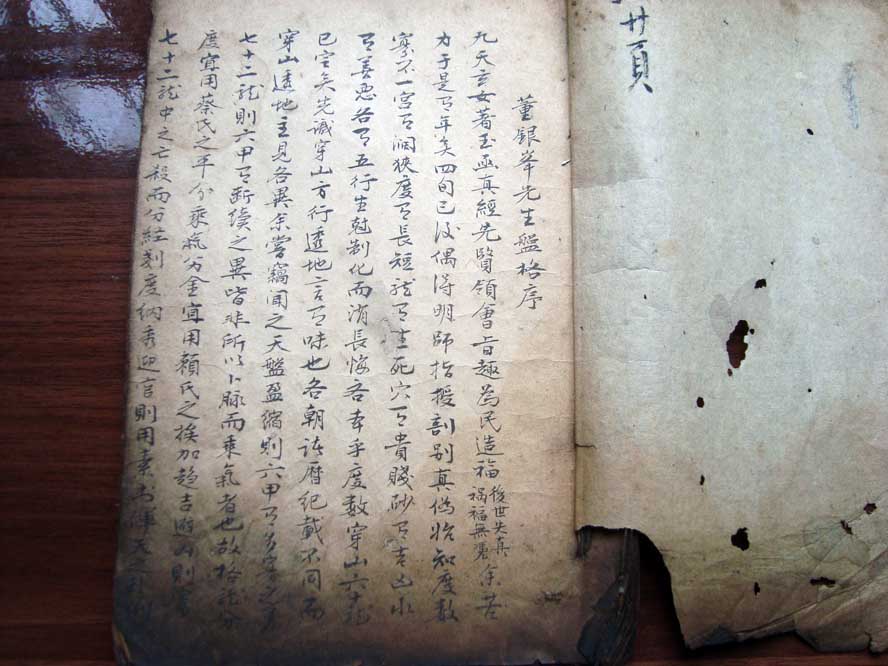 廿頁
董銀峯先生盤格序
九天玄女著玉函真經先賢領會旨趣為民造福後世失真禍福無憑余苦
力于是有年矣四旬已後偶得明師指授剖別真偽始知度數
寥不一宮有濶狹度有長短龍有生死穴有貴賤砂有吉凶水
有善惡各有五行生尅制化而消長悔吝本乎度數穿山六十龍
已定矣先識穿山方行透地言有味也各朝諸曆紀載不同而
穿山透地主見各異余嘗竊聞之天盤盈縮則六甲有多寡之差
七十二龍則六甲有斷續之異皆非所以卜脉而乘氣者也故格龍分
度宜用蔡氏之平分乘氣分金宜用賴氏之挨加趨吉避凶則會
七十二龍中之亡殺而分經刻度納音迎官則用素書渾天之